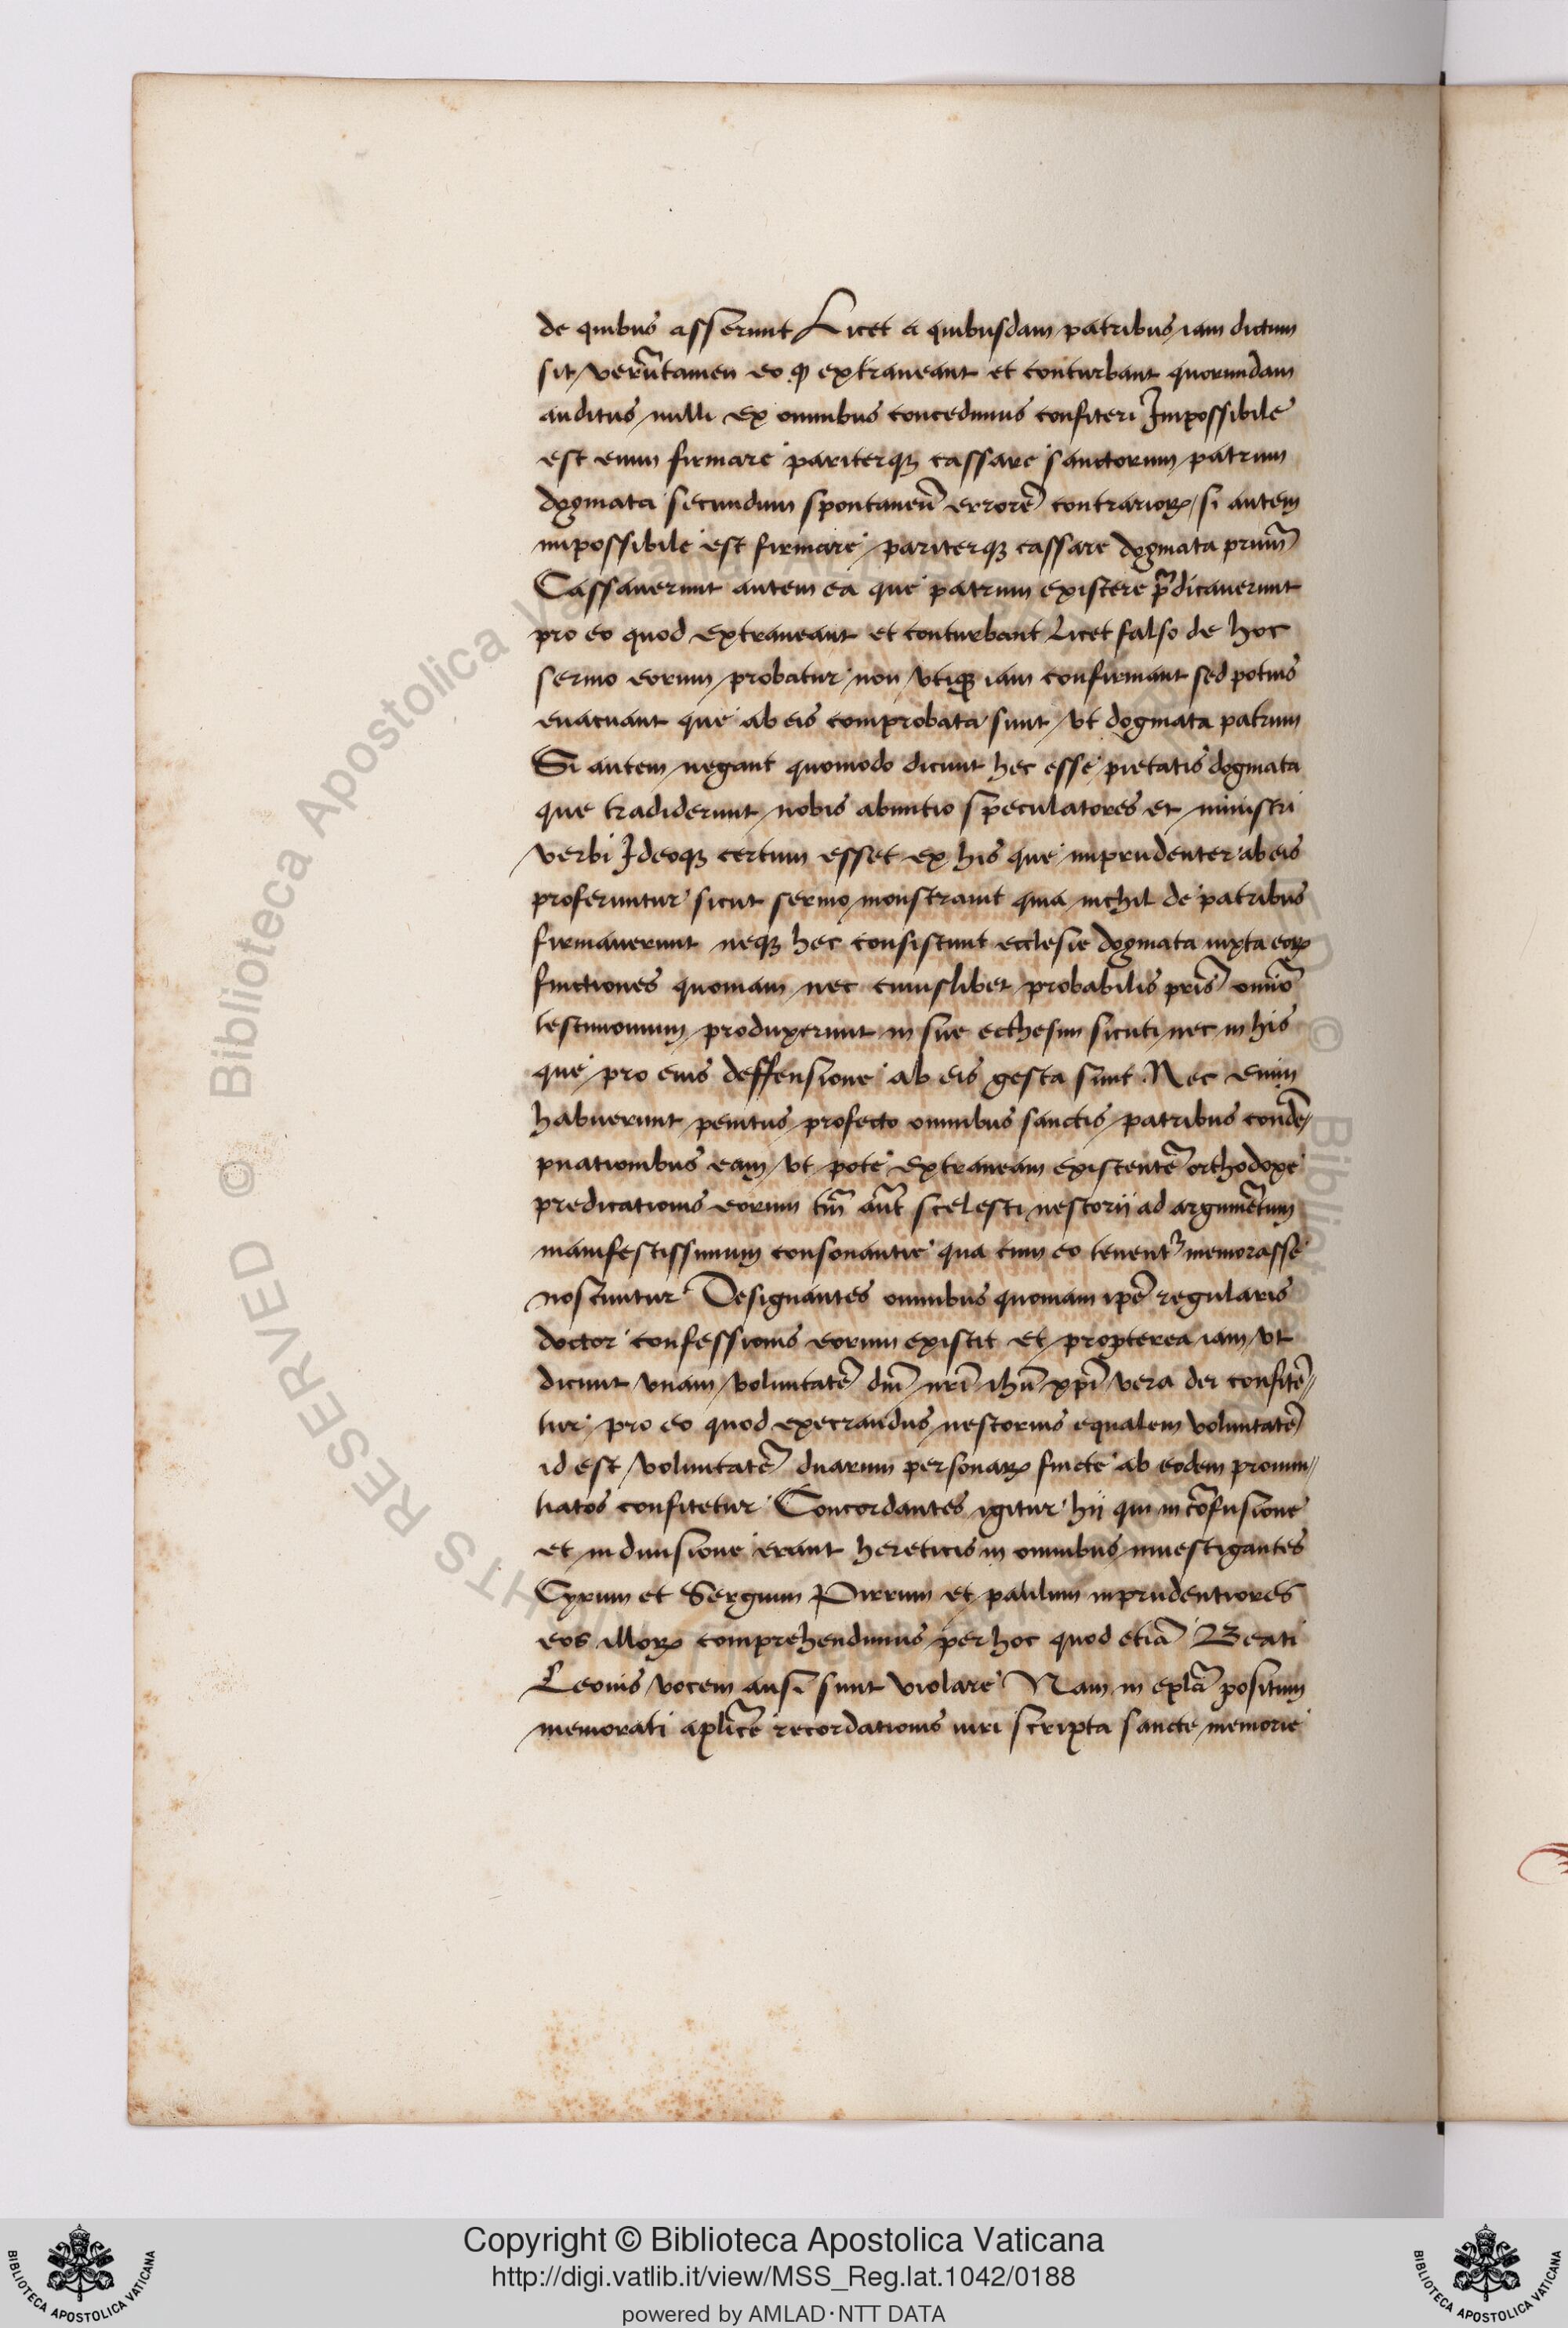 de quibus asserunt Licet a quibusdam patribus iam dictum
sit verũtamen eo ꝙ extraneant et conturbant quorundam
auditus nulli ex omnibus concedimus confiteri Impossibile
est enim firmare pariterqꝫ cassare sanctorum patrum
dogmata secundum spontaneũ errorẽ contrarioꝝ si autem
impossibile est firmare pariterqꝫ cassare dogmata primũ
Cassauerunt autem ea que patrum existere p̃dicauerunt
pro eo quod extraneant et conturbant Licet falso de hoc
sermo eorum probatur non vtiqꝫ iam confirmant sed potius
euacuant que ab eis comprobata sunt vt dogmata patrum
Si autem negant quomodo dicunt hec esse pietatis dogmata
que tradiderunt nobis abinitio speculatores et ministri
verbi Ideoqꝫ certum esset ex his que imprudenter ab eis
proferuntur sicut sermo monstrauit quia nichil de patribus
firmauerunt neqꝫ hec consistunt ecclesie dogmata iuxta eoꝝ
finctiones quoniam nec cuiuslibet probabilis pr̃is om̃io
testimonium produxerunt in sue ecthesim sicuti nec in his
que pro eius deffensione ab eis gesta sunt Nec enim
habuerunt penitus profecto omnibus sanctis patribus condẽ/
pnationibus eam vt pote extraneam existentẽ orthodoxe
predicationis eorum tm̃ aũt scelesti nestorii ad argumẽtum
manifestissimum consonantie qua cum eo tenent᷑ memorasse
noscuntur Designantes omnibus quoniam ip̃e regularis
doctor confessionis eorum existit et propterea iam vt
dicunt vnam voluntatẽ dñi nr̃i ihũ xp̃i vera dei confitẽ//
tur pro eo quod execrandus nestorius equalem voluntatẽ
id est voluntatẽ duarum personaꝝ fincte ab eodem pronun//
tiatos confitetur Concordantes igitur hii qui in cõfusione
et in diuisione erant hereticis in omnibus inuestigantes
Cyrum et Sergium Pirrum et paulum inprudentiores
eos illoꝝ comprehendimus per hoc quod etiã Beati
Leonis vocem ausi sunt violare Nam in expl̃a positum
memorati apl̃ice recordationis uiri scripta sancte memorie
Copyright © Biblioteca Apostolica Vaticana
http://digi.vatlib.it/view/MSS_Reg.lat.1042/0188
powered by AMLAD·NTT DATA